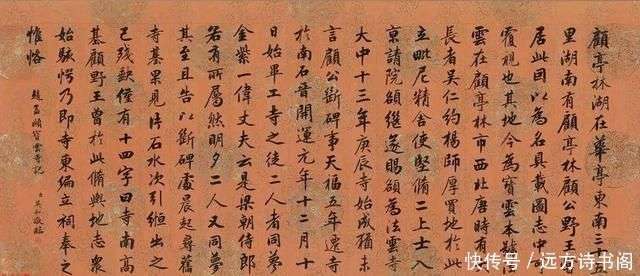 顧亭林湖在華亭東南三
里湖南有顧亭林顧公野王
居此因以為名具載圖志中
覆視也其地今為寶雲本號
雲在顧亭林市西北唐時有
長者吳仁約楊師厚買地於此
立毗尼精舍使堅脩二上士入
京請院額繼蒙賜額為法雲寺
大中十三年庚辰寺始成猶未
言顧公斷碑事天福五年遷寺
於南石晉開運元年十二月十
日始畢工寺之徒二人者同夢
金紫一偉丈夫云是梁朝侍郎
若有所屬然明夕二人又同夢
其至且告以斷碑處晨起尋舊
寺基果見片石水次引絙出之
已殘缺僅有十四字曰寺南高
基顧野王曾於此脩輿地志眾
始駭愕乃即寺東偏立祠奉之
惟恪
趙孟頫寶雲寺記
快传号/远方诗书阁